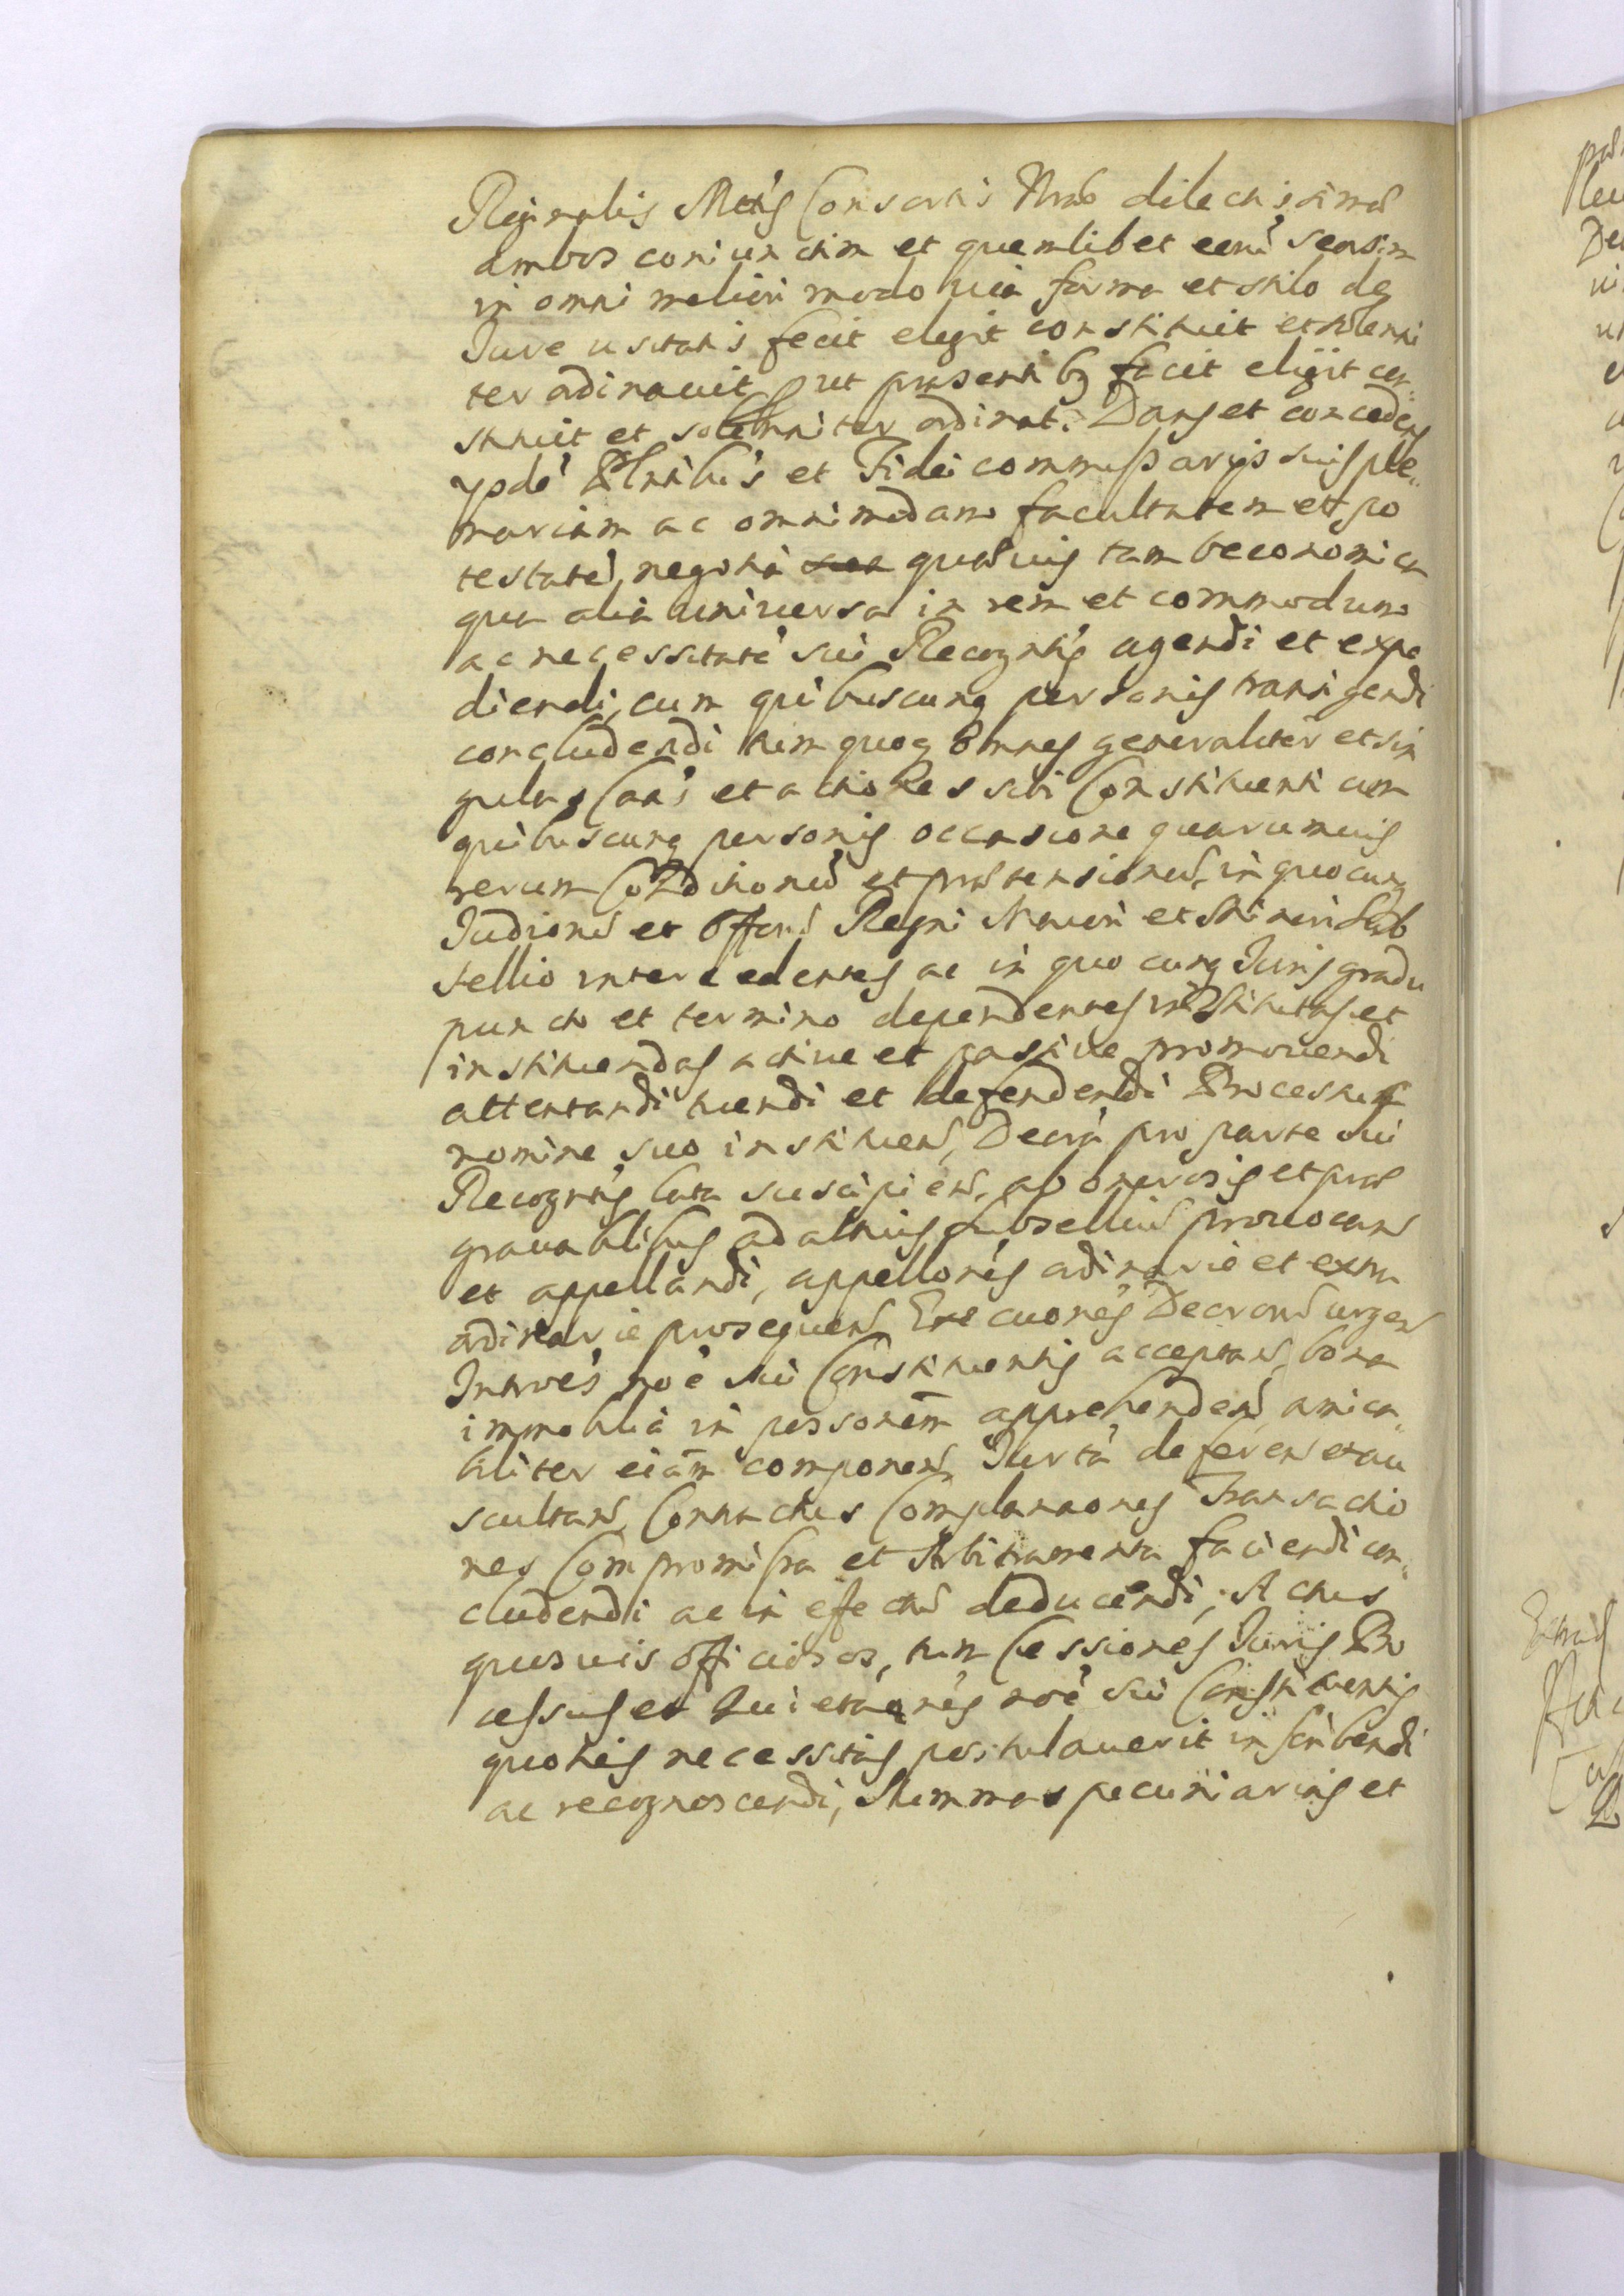 Reginalis Mttis Consortis Nrae dilectissimae
ambos coniunctim et quemlibet eorũ seorsim
in omni meliori modo via forma et stilo de
Jure usitatis fecit elegit constituit et solenni
ter ordinavit put praesentibq facit eligit con„
stituit et solemniter ordinat. Dans et concedens
ysdē Plntibus et Fidei commissarys suis ple„
nariam ac omnimodam facultatem et po
testatē, negotia quaevis tam oeconomica
qua alia universa in rem et commodum
ac necessitatē sui Recogntis agendi et expe
diendi, cum quibuscunq personis transigendi
concludendi tum quoq omnes generaliter et sin
gulas Caās et actiones sibi Constituenti cum
quibuscunq personis occasione quarumvis
rerum Condition̄ et praetension̄, in quocunq
Judiciord et Offord Regni Maiori et Minori Sub
sellio intercedentes ac in quocunq Juris gradu
puncto et termino dependentes institutas et
instituendas active et passive promovendi
attentandi tuendi et defendendi Processus
nomine suo instituend, Decrta pro parte sui
Recogntis lata suscipiend, ab onerosis et prae
gravatibus ad altius subsellium provocand
et appellandi, appellones ordinarie et extra
ordinarie prosequend Executiones Decrord urgend
Introes noē sui Constituentis acceptand, bona
immobilia in possonem apprehendend, amica„
biliter etiam componend Jurta deferend et au
scultand, Contractus Complanaones Transactio
nes Compromissa et Arbitramenta faciendi con„
cludendi ac in effectū deducendi; Actus
quosvis officiosos, tum Cessiones Juris Pro
cessus et Quietaones noē sui Constituentis
quoties necessitas postulaverit inscribendi
ac recognoscendi, Summas pecuniarias et